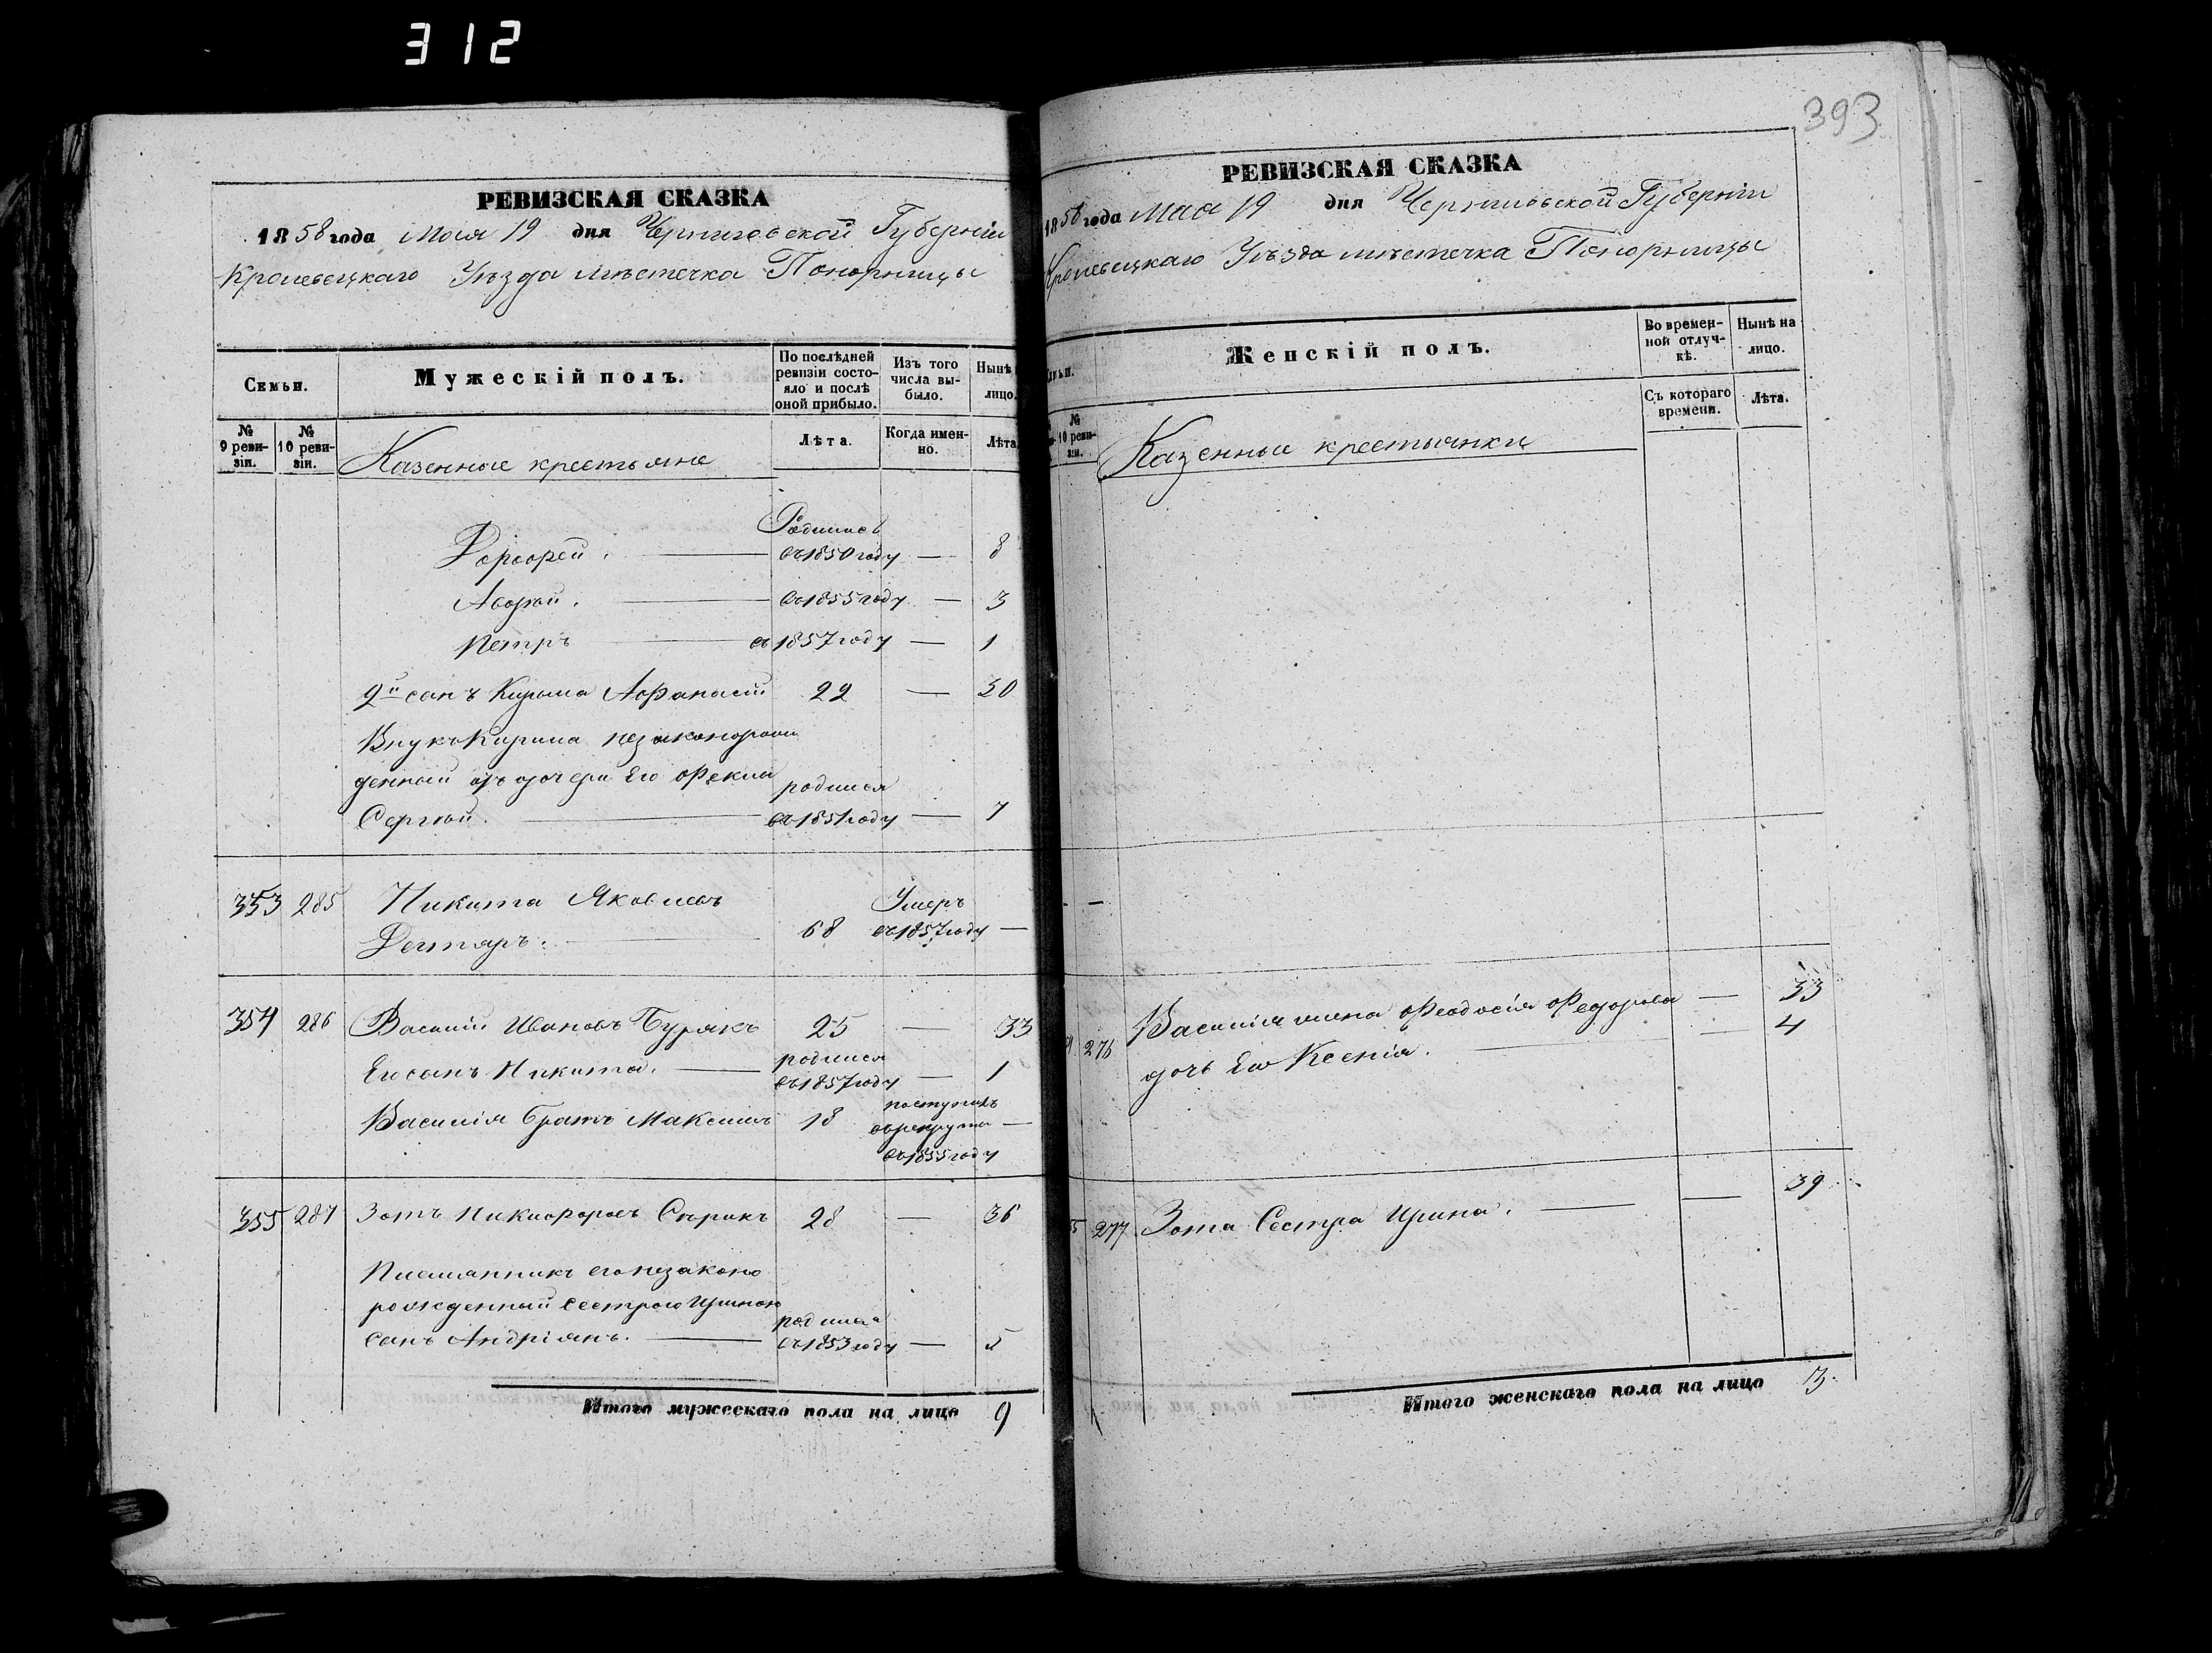 312
393
РЕВИЗСКАЯ СКАЗКА
1858 года Мая 19 дня Черниговской Губерніи
Кролевецкаго Уѣзда мѣстечка Понорницы
Семьи.
Мужескій полъ.
По послѣдней ревизіи состояло и послѣ оной прибыло.
Изъ того числа выбыло.
Нынѣ
лицо.
№ 9 ревизіи.
№ 10 ревизіи.
Казенные крестьяне
Лѣта.
Когда именно.
Лѣта
Родился
въ 1850 году — 8
Андрей. въ 1855 году — 3
Петръ въ 1857 году — 1
2й сынъ Кирила Афанасій 22 — 30
Внукъ Кирила незаконорож
денный отъ дочери Его Феклы
родился
Сергѣй. въ 1851 году — 7
353 285 Никита Яковлевъ Умеръ
Дегтяръ. 68 въ 1857 году —
354 286 Василій Ивановъ Бурякъ 25 — 33
родился
Его сынъ Никита. въ 1857 году — 1
Василія братъ Максимъ 18 поступилъ
въ рекруты —
въ 1855 году
355 287 Зотъ Никифоровъ Сѣрикъ 28 — 36
Племянникъ его незаконо
рожденный сестрою Ириною
родился
сынъ Андріянъ. въ 1853 году — 5
Итого мужескаго пола на лицо 9
РЕВИЗСКАЯ СКАЗКА
1858 года Мая 19 дня Черниговской Губерніи
Кролевецкаго Уѣзда мѣстечка Понорницы
Женскій полъ.
Во временной отлучкѣ.
Нынѣ на лицо.
Съ котораго времени.
Лѣта.
№ 10 ревизіи.
Казенные крестьянки
276 Василія жена Феодосія Федорова — 33
дочь Его Ксенія. — 4
277 Зота Сестра Ирина. — 39
Итого женскаго пола на лицо 3.